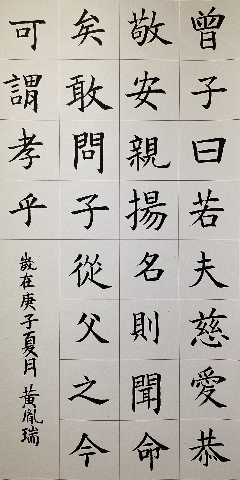 曾子曰若夫慈愛恭
敬安親揚名則聞命
矣敢問子從父之今
可謂孝乎
歲在庚子夏月 黃胤瑞